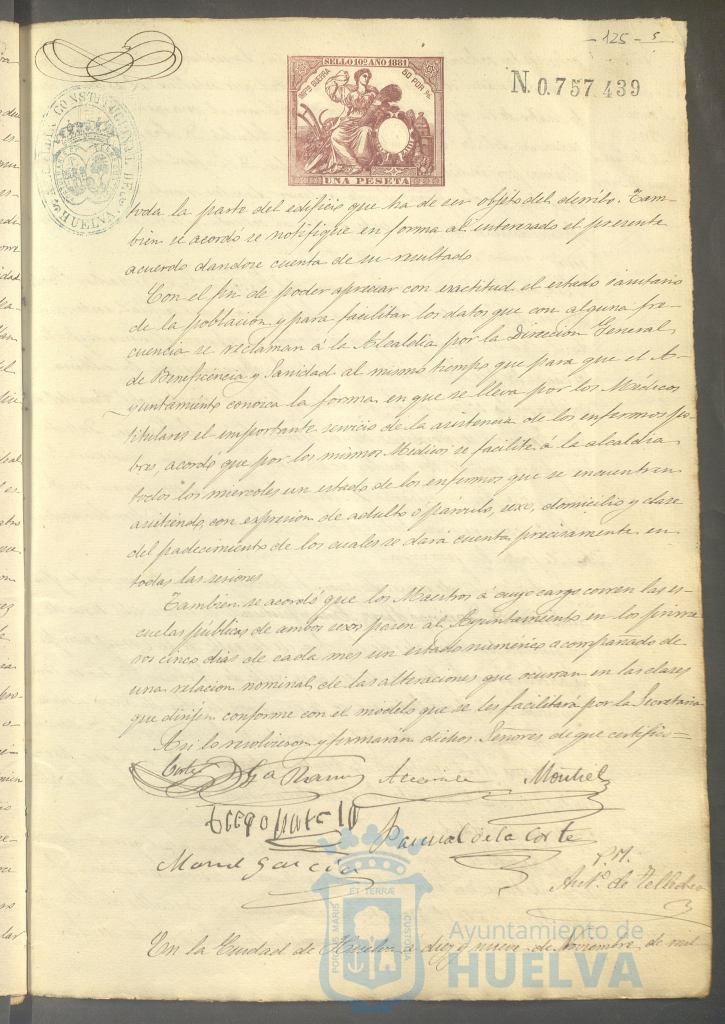 - 125 - 5
SELLO 10º AÑO 1881
IMPTO GUERRA
50 POR %
UNA PESETA
N. 0.757.439
CONSTITUCIONAL DE
HUELVA
toda la parte del edificio que ha de ser objeto del derribo. Tam-
bien se acordó se notifique en forma al interesado el presente
acuerdo dandose cuenta de su resultado
Con el fin de poder apreciar con exactitud el estado sanitario
de la poblacion y para facilitar los datos que con alguna fre-
cuencia se reclaman á la Alcaldia por la Direccion General
de Beneficencia y Sanidad al mismo tiempo que para que el A-
yuntamiento conozca la forma en que se lleva por los Médicos
titulares el importante servicio de la asistencia de los enfermos po-
bres, acordó que por los mismos Médicos se facilite á la alcaldia
todos los miercoles un estado de los enfermos que se encuentren
asistiendo, con expresion de adulto ó párvulo, sexo, domicilio y clase
del padecimiento de los cuales se dará cuenta precisamente en
todas las sesiones
Tambien se acordó que los Maestros á cuyo cargo corren las es-
cuelas públicas de ambos sexos pasen al Ayuntamiento en los prime
ros cinco dias de cada mes un estado numérico acompañado de
una relacion nominal, de las alteraciones que ocurran en las clases
que dirijen conforme con el modelo que se les facilitará por la Secretaria
Asi lo resolvieron y firmarán dichos Señores de que certifico =
Corte Montiel
Pascual de la Corte
Manl Garcia
P. M.
Antº de
En la Ciudad de Huelva a diez y nueve de Noviembre de mil
PORTUS MARIS ET TERRÆ CUSTODIA
Ayuntamiento de
HUELVA